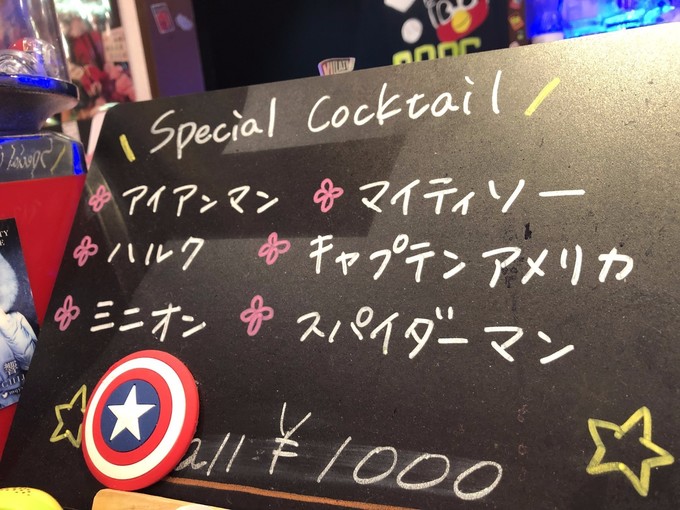 Special Cocktail
アイアンマン マイティソー
ハルク キャプテンアメリカ
ミニオン スパイダーマン
all ¥1000